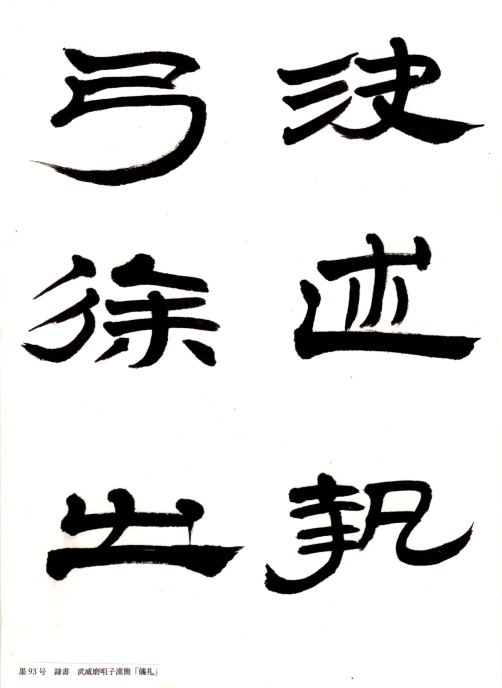 決述執
弓徐出
墨93号　隷書　武威磨咀子漢簡「儀礼」